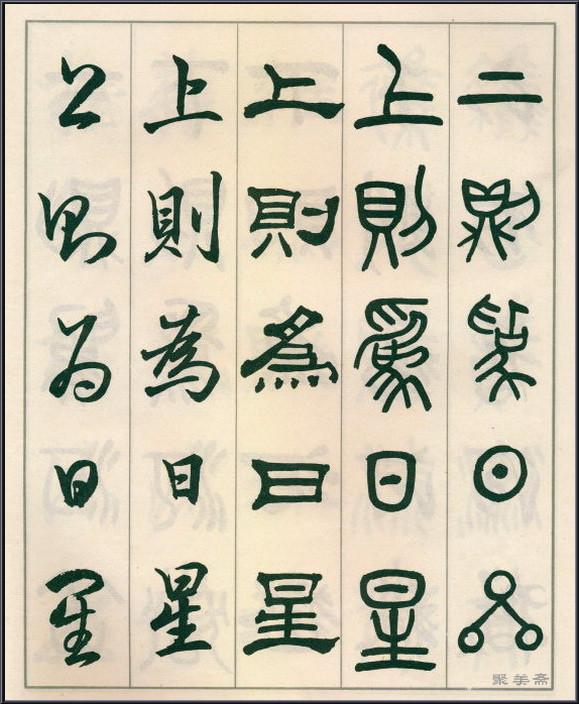 上則爲日星
上則爲日星
上則爲日星
上則為日星
上則為日星
聚美斋